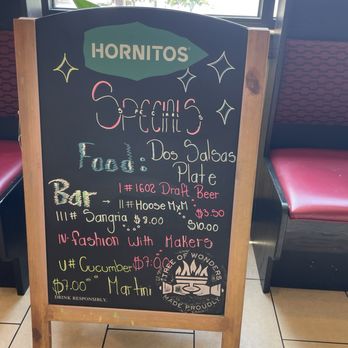 HORNITOS
Specials
Food: Dos Salsas
Plate
Bar I# 1602 Draft Beer
II# Hoose MxM $3.50
III# Sangria $8.00 $10.00
IV- Fashion with Makers
V# Cucumber $7.00
$7.00 Martini
TREE OF WONDERS
MADE PROUDLY
DRINK RESPONSIBLY.